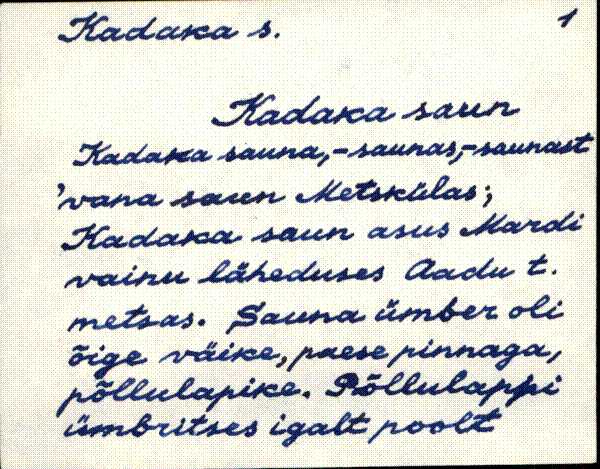 Kadaka s. 1
Kadaka saun
Kadaka sauna, -saunas, -saunast
'vana saun Metskülas;
Kadaka saun asus Mardi
vainu läheduses Aadu t.
metsas. Sauna ümber oli
õige väike, paese pinnaga,
põllulapike. Põllulappi
ümbritses igalt poolt